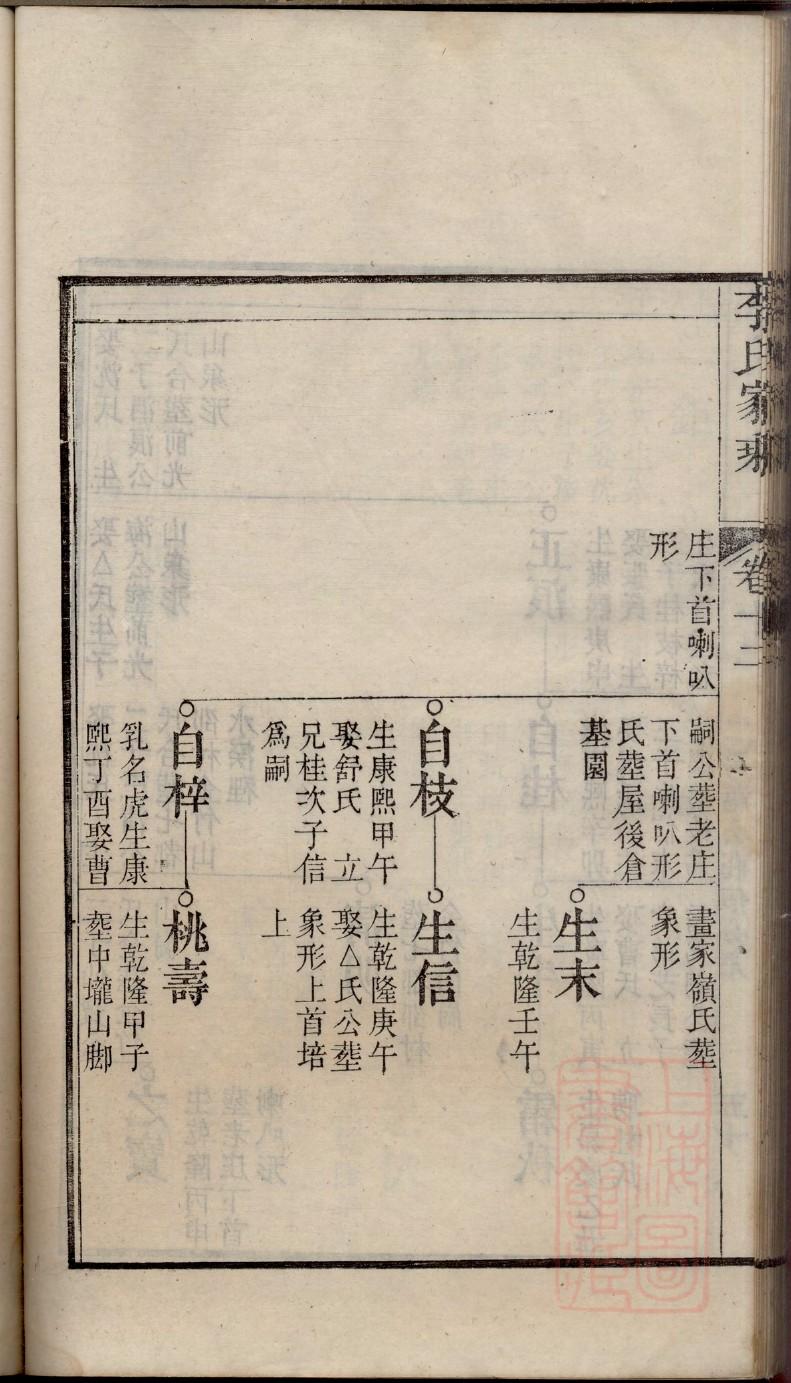 李氏家乘
卷十二
庄下首喇叭
形
嗣公塟老庄
下首喇叭形
氏塟屋後倉
基園
畫家嶺氏塟
象形
生末
生乾隆壬午
自枝
生康熙甲午
娶舒氏 立
兄桂次子信
爲嗣
生信
生乾隆庚午
娶△氏公塟
象形上首培
上
自梓
乳名虎生康
熙丁酉娶曹
桃壽
生乾隆甲子
塟中壠山脚